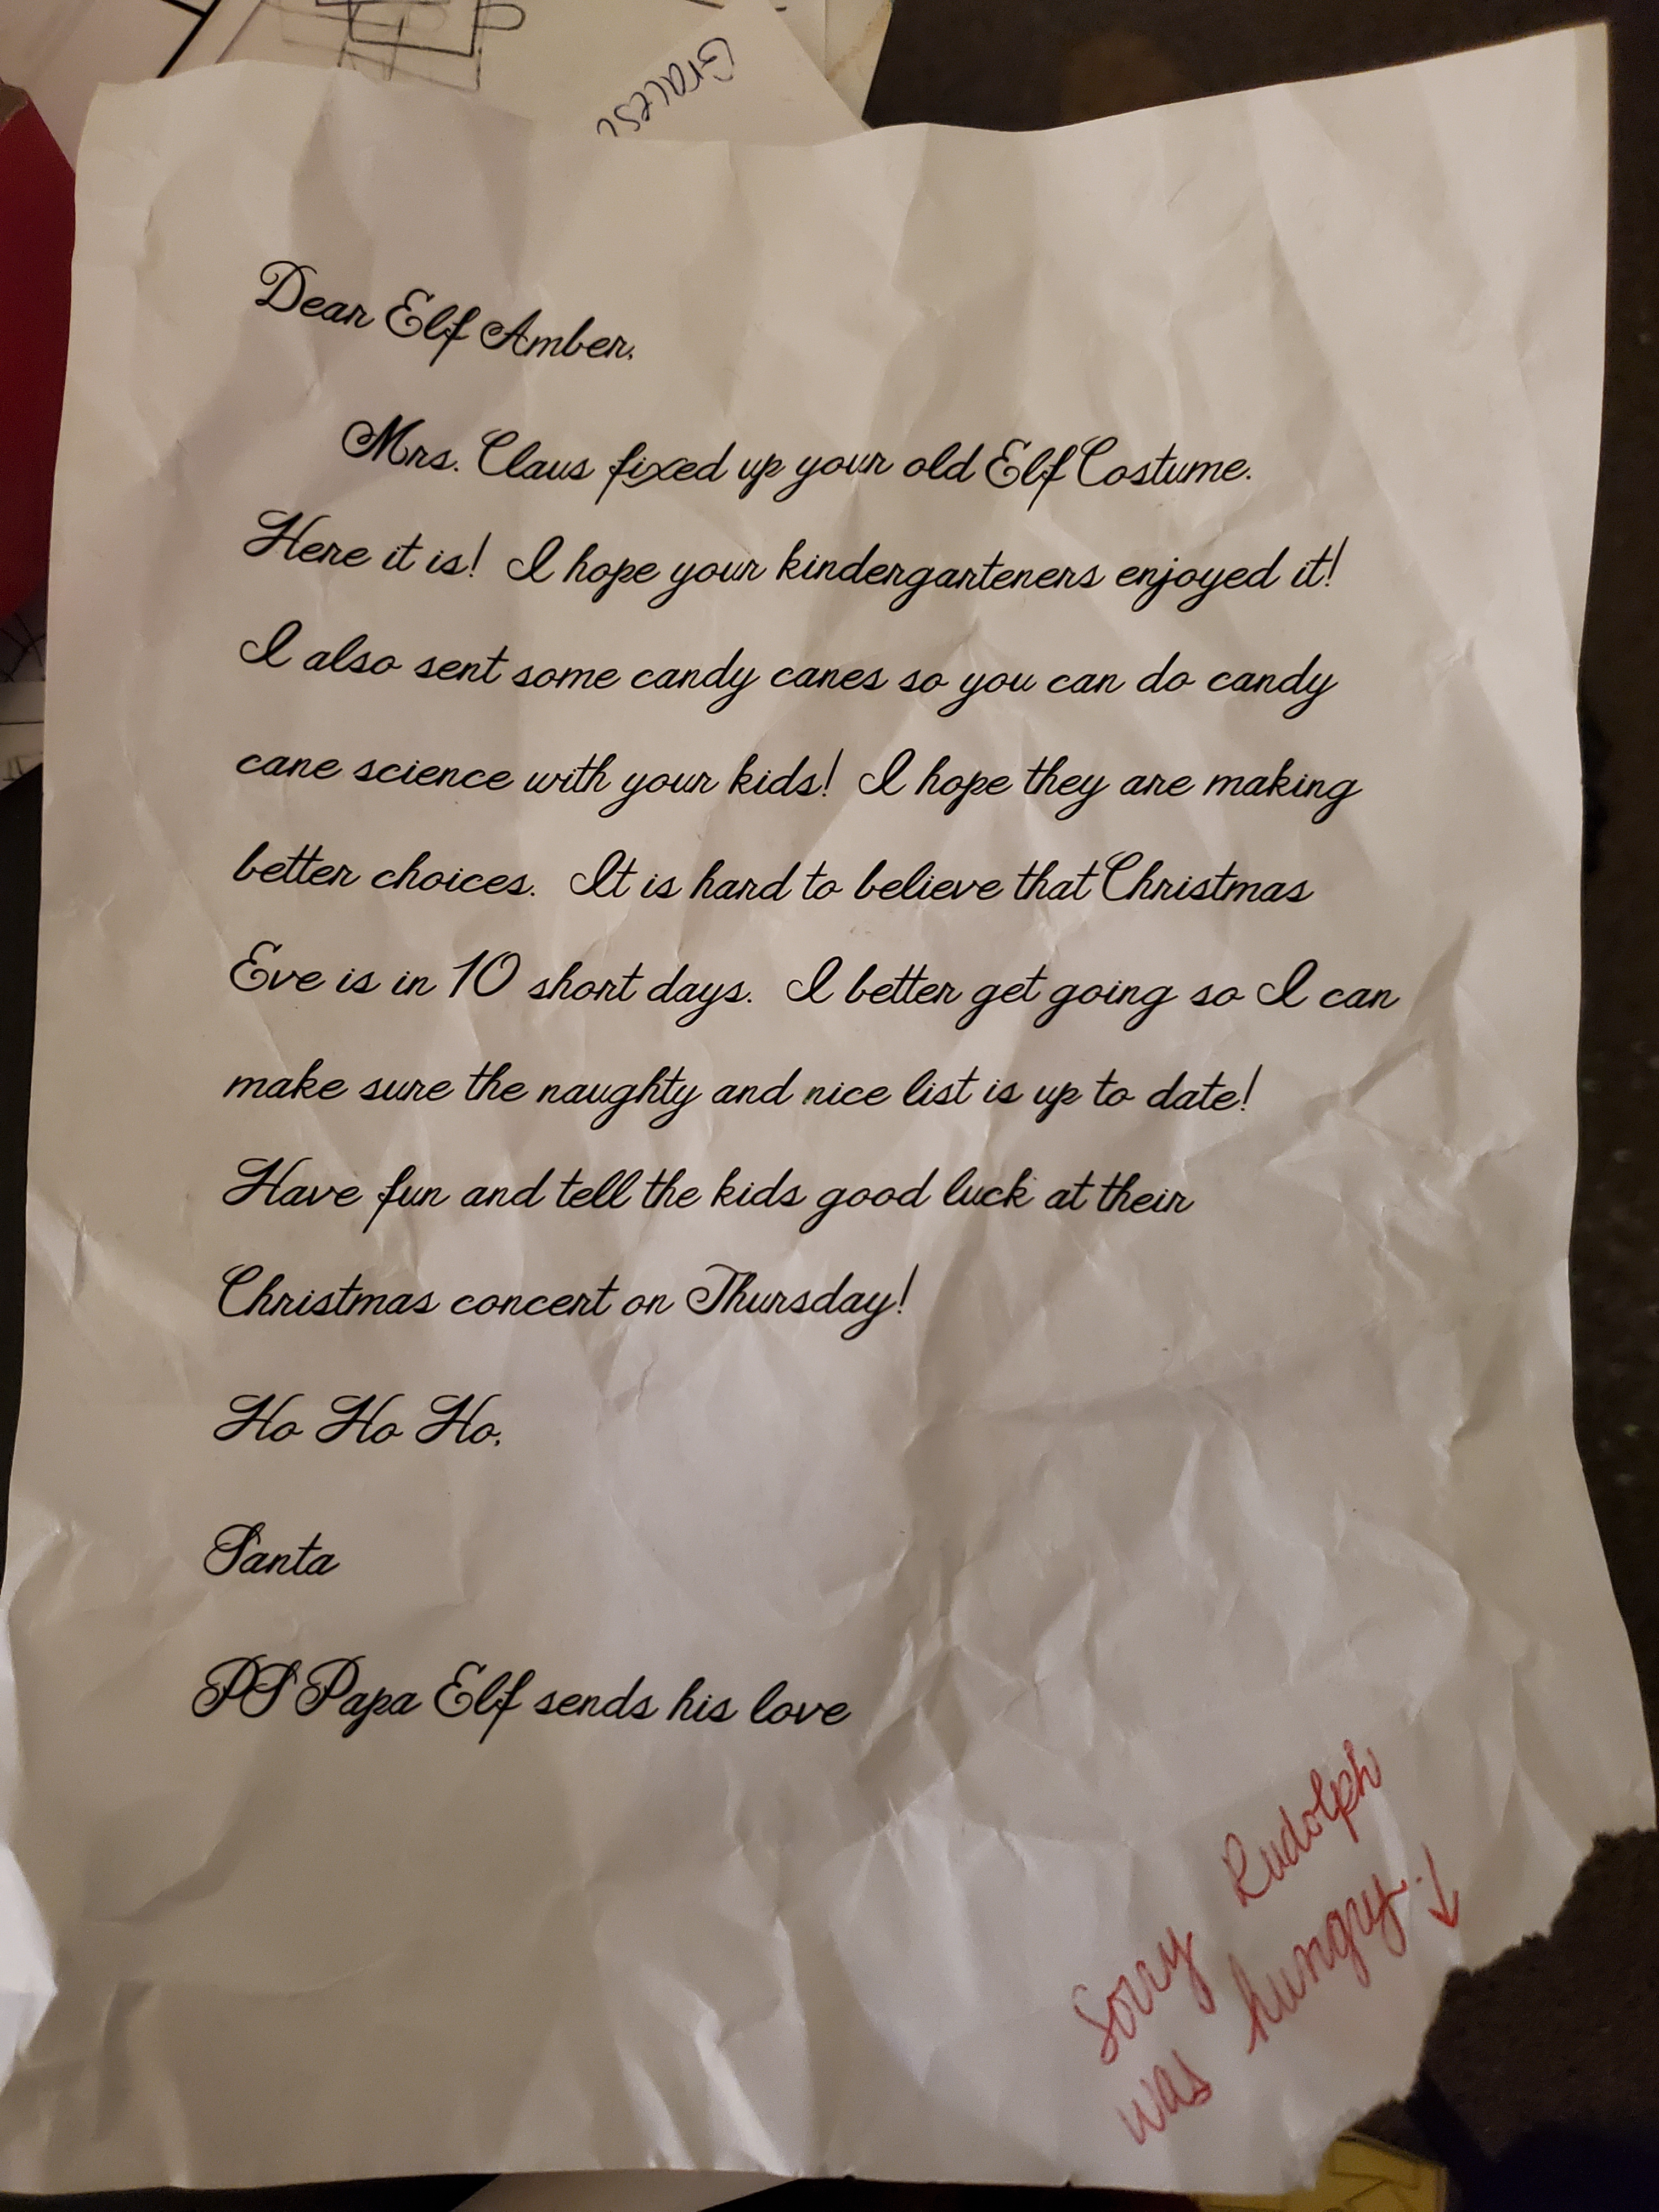 Dear Elf Amber,
Mrs. Claus fixed up your old Elf Costume.
Here it is! I hope your kindergarteners enjoyed it!
I also sent some candy canes so you can do candy
cane science with your kids! I hope they are making
better choices. It is hard to believe that Christmas
Eve is in 10 short days. I better get going so I can
make sure the naughty and nice list is up to date!
Have fun and tell the kids good luck at their
Christmas concert on Thursday!
Ho Ho Ho,
Santa
PS Papa Elf sends his love
Sorry Rudolph
was hungry. ↓